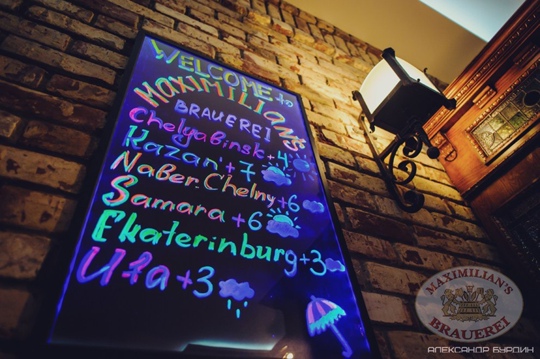 WELCOME to
MAXIMILIAN'S
BRAUEREI
Chelyabinsk +4
Kazan' +7
Naber. Chelny +6
Samara +6
Ekaterinburg +3
Ufa +3
MAXIMILIAN'S
BRAUEREI
АЛЕКСАНДР БУРДИН